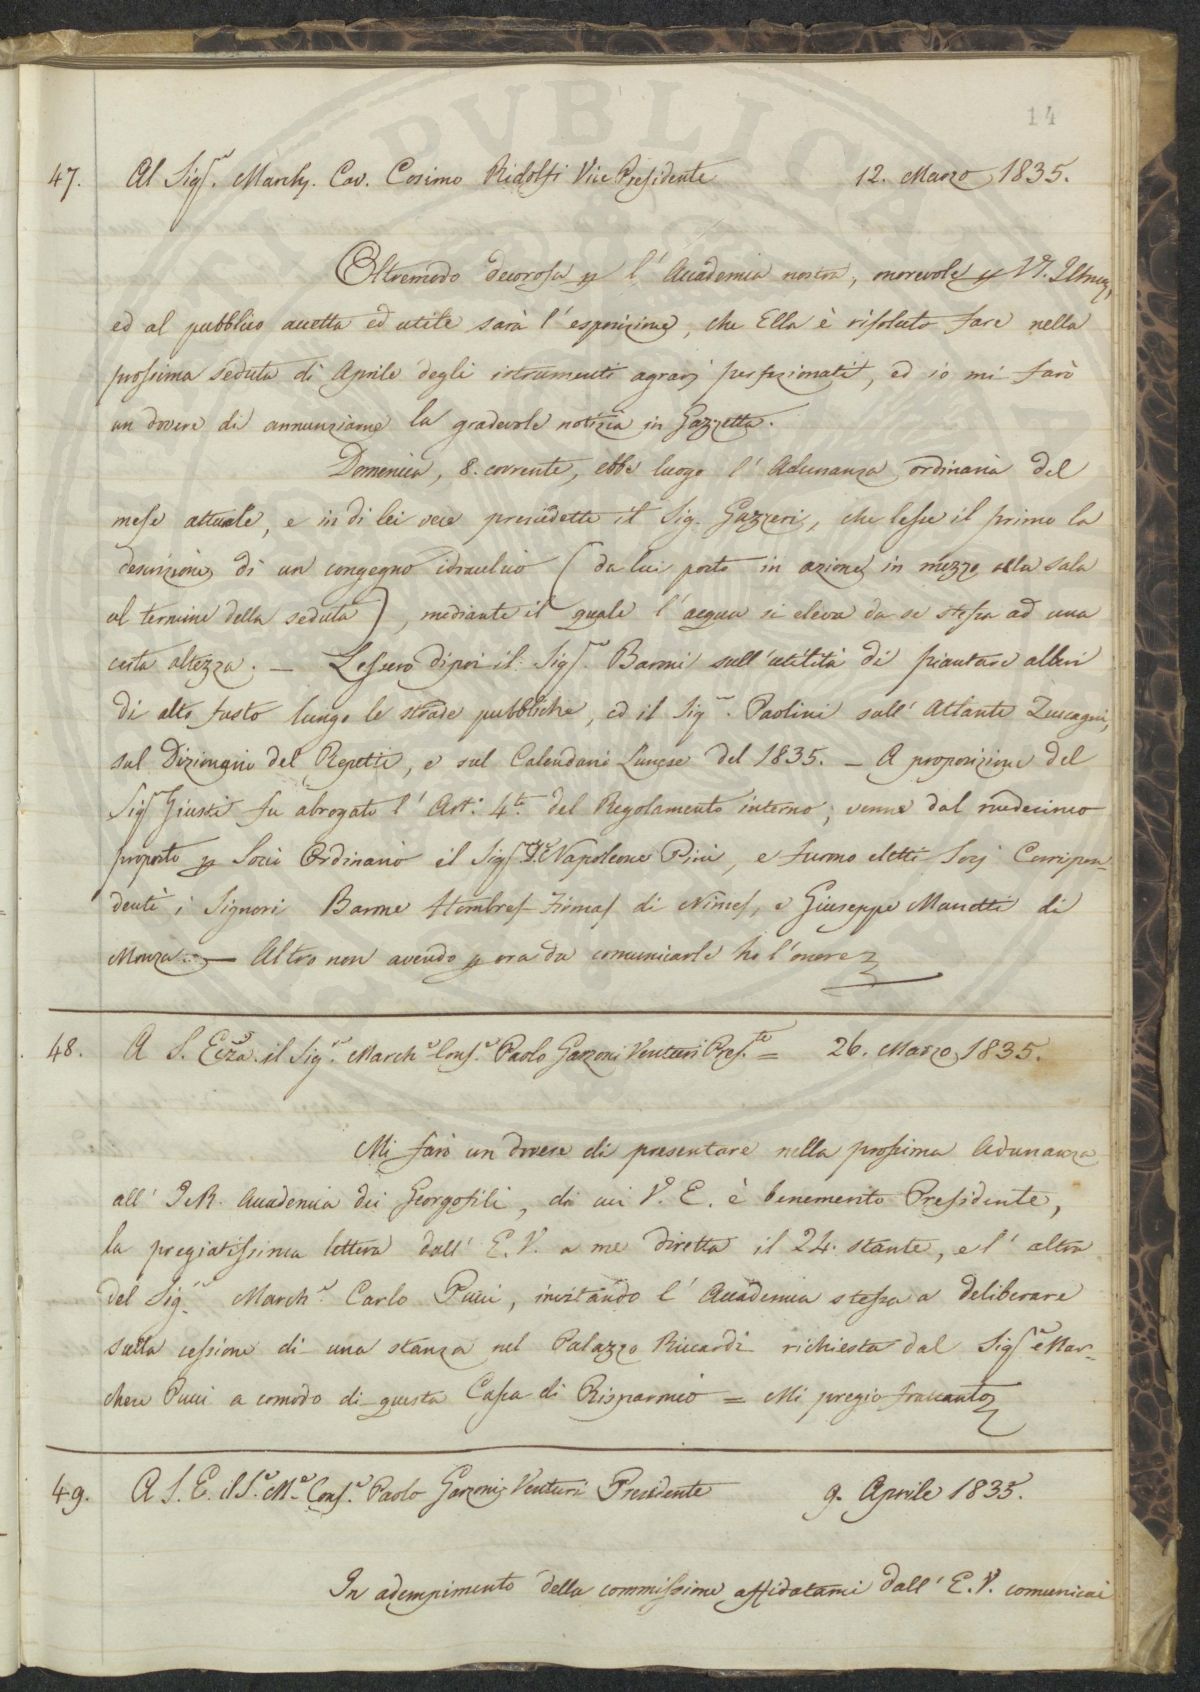 14
47. Al Sigr. March. Cav. Cosimo Ridolfi Vice Presidente 12. Marzo 1835.
Oltremodo decorosa p l' Accademia nostra, onorevole p V. S. Illma,
ed al pubblico accetta ed utile sarà l'esposizione, che Ella è risoluto fare nella
prossima Seduta di Aprile degli istrumenti agrarj perfezionati, ed io mi farò
un dovere di annunziarne la gradevole notizia in Gazzetta.
Domenica, 8. corrente, ebbe luogo l' Adunanza ordinaria del
mese attuale, e in di lei vece presiedette il Sig. Gazzeri, che lesse il primo la
descrizione di un congegno idraulico (da lui posto in azione in mezzo alla sala
al termine della seduta), mediante il quale l' acqua si eleva da se stessa ad una
certa altezza. — Lessero dipoi il Sigr. Barmi sull'utilità di piantare alberi
di alto fusto lungo le strade pubbliche, ed il Sigr. Paolini sull' Atlante Zuccagni,
sul Dizionario del Repetti, e sul Calendario Lunese del 1835. — A proposizione del
Sigr Giusti fu abrogato l' Art. 4to. del Regolamento interno; venne dal medesimo
proposto p Socio Ordinario il Sigr Dr Napoleone Pini, e furono eletti Socj Corrispon=
denti i Signori Barone Hombres-Firmas di Nîmes, e Giuseppe Manetti di
Monza. — Altro non avendo p ora da comunicarle ho l'onore
48. A S. Ecza. il Sigr. March. Consr. Paolo Garzoni Venturi Preste. = 26. Marzo 1835.
Mi farò un dovere di presentare nella prossima Adunanza
all' I e R. Accademia dei Georgofili, di cui V. E. è benemerito Presidente,
la pregiatissima lettera dall' E. V. a me diretta il 24. stante, e l' altra
del Sigr. March. Carlo Pucci, invitando l' Accademia stessa a deliberare
sulla cessione di una stanza nel Palazzo Riccardi richiesta dal Sigr Mar=
chese Pucci a comodo di questa Cassa di Risparmio = Mi pregio frattanto
49. A S. E. il Sr. Me. Consr. Paolo Garzoni Venturi Presidente 9. Aprile 1835.
In adempimento della commissione affidatami dall' E. V. comunicai